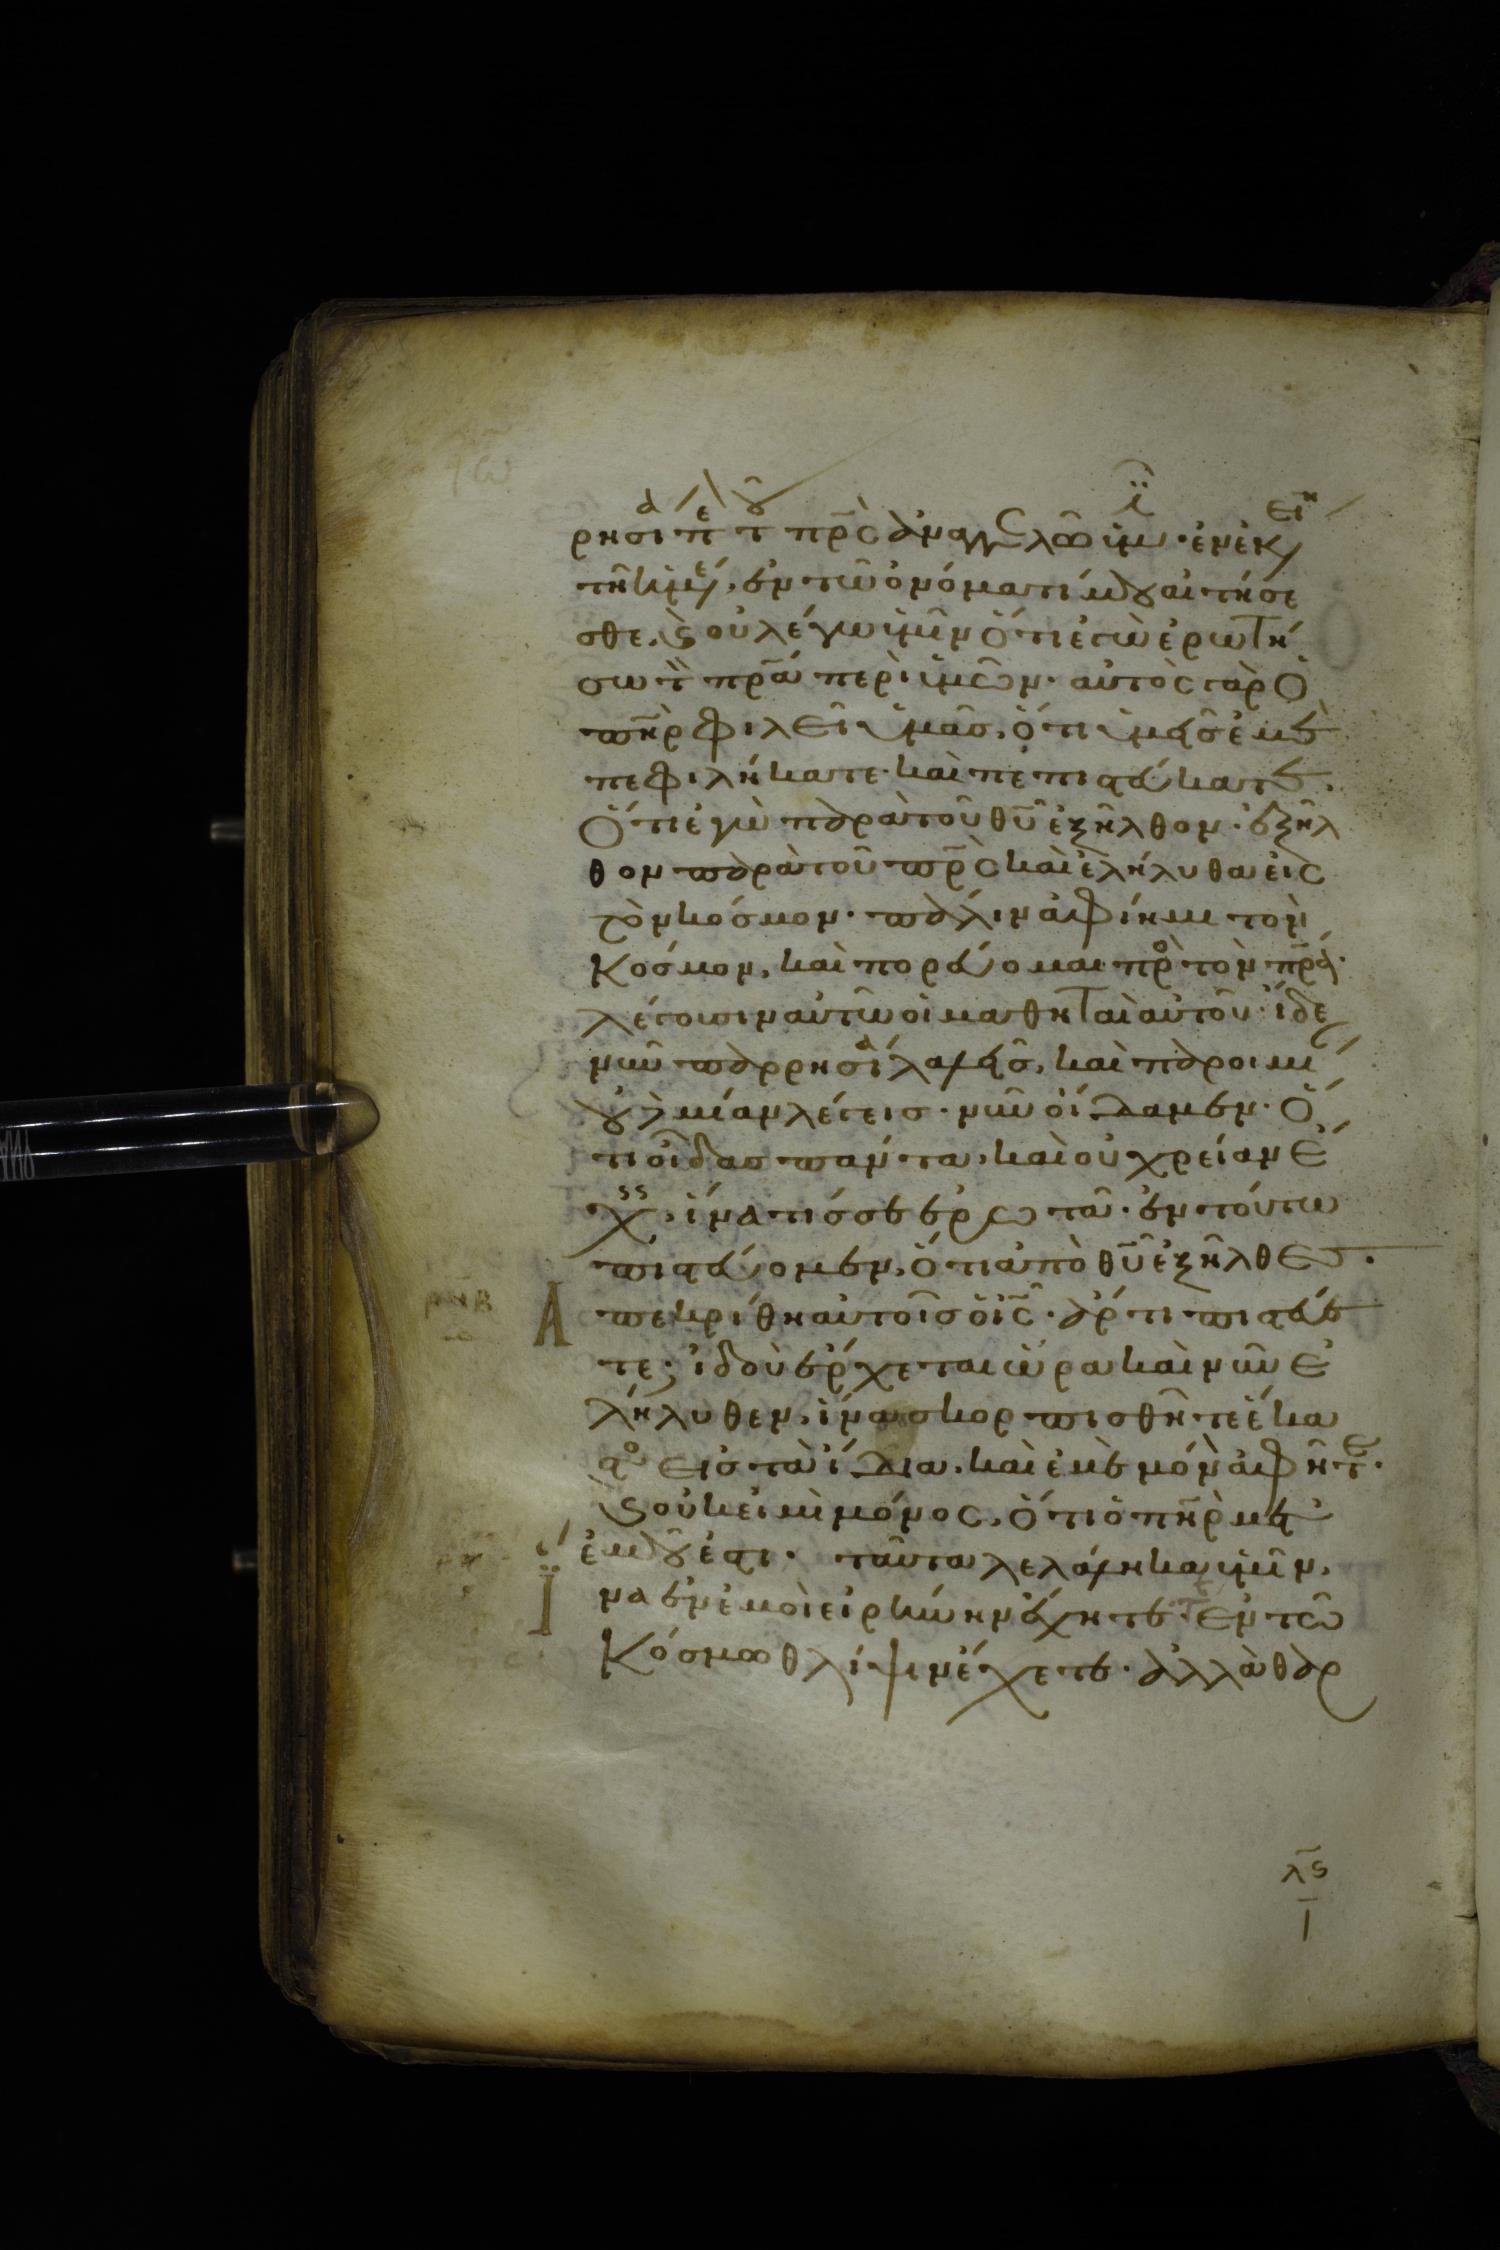 ρησία περὶ τοῦ πρ̅ς ἀναγγελῶ ὑμῖν· ἐν ἐκεί
τῇ ἡμέρ, ἐν τῷ ὀνόματί μου αἰτήσε
σθε, καὶ οὐ λέγω ὑμῖν ὅτι ἐγὼ ἐρωτή
σω τὸν πρ̅α περὶ ὑμῶν· αὐτὸς γὰρ ὁ
πη̅ρ φιλεῖ ὑμᾶς, ὅτι ὑμεῖς ἐμὲ
πεφιλήκατε· καὶ πεπιστεύκατε,
ὅτι ἐγὼ παρὰ τοῦ θυ̅ ἐξῆλθον· ἐξῆλ
θον παρὰ τοῦ πρ̅ς καὶ ἐλήλυθα εἰς
τὸν κόσμον· πάλιν ἀφίημι τὸν
κόσμον, καὶ πορεύομαι πρὸς τὸν πρ̅α·
λέγουσιν αὐτῷ οἱ μαθηταὶ αὐτοῦ· ἴδε
νῦν παρρησία λαλεῖς, καὶ παροιμί
οὐδεμίαν λέγεις· νῦν οἴδαμεν· ὅ
τι οἶδας πάντα, καὶ οὐ χρείαν ἔ
χεις, ἵνα τίς σε ἐρωτᾶ· ἐν τούτω
πιστεύομεν, ὅτι ἀπὸ θυ̅ ἐξῆλθες·
Ἀπεκρίθη αὐτοῖς ὁ ις̅· ἄρτι πιστεύε
τε; ἰδοὺ ἔρχεται ὥρα καὶ νῦν ἐ
λήλυθεν, ἵνα σκορπισθῆτε ἕκα
στος εἰς τὰ ἴδια, καὶ ἐμὲ μόνον ἀφῆτε·
καὶ οὐκ εἰμὶ μόνος, ὅτι ὁ πη̅ρ μετ
ἐμοῦ ἐστι· ταῦτα λελάληκα ὑμῖν,
ἵνα ἐν ἐμοὶ εἰρήνην ἔχητε· ἐν τῶ
κόσμω θλίψιν ἔχετε· ἀλλὰ θαρ
λ̅ς
ι̅